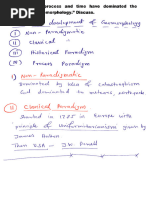 process and time have dominated the
morphology." Discuss.
development of Geomorphology
I Non - Paradigmatic
II Classical
III Historical Paradigm
IV Process Paradigm
I) Non-Paradigmatic
Dominated by idea of catastrophism
and dominated to
II Classical Paradigm
Started in 1785 in Europe with
principle of Uniformitarianism given by
James Hutton
Then USA - J.W. Powell